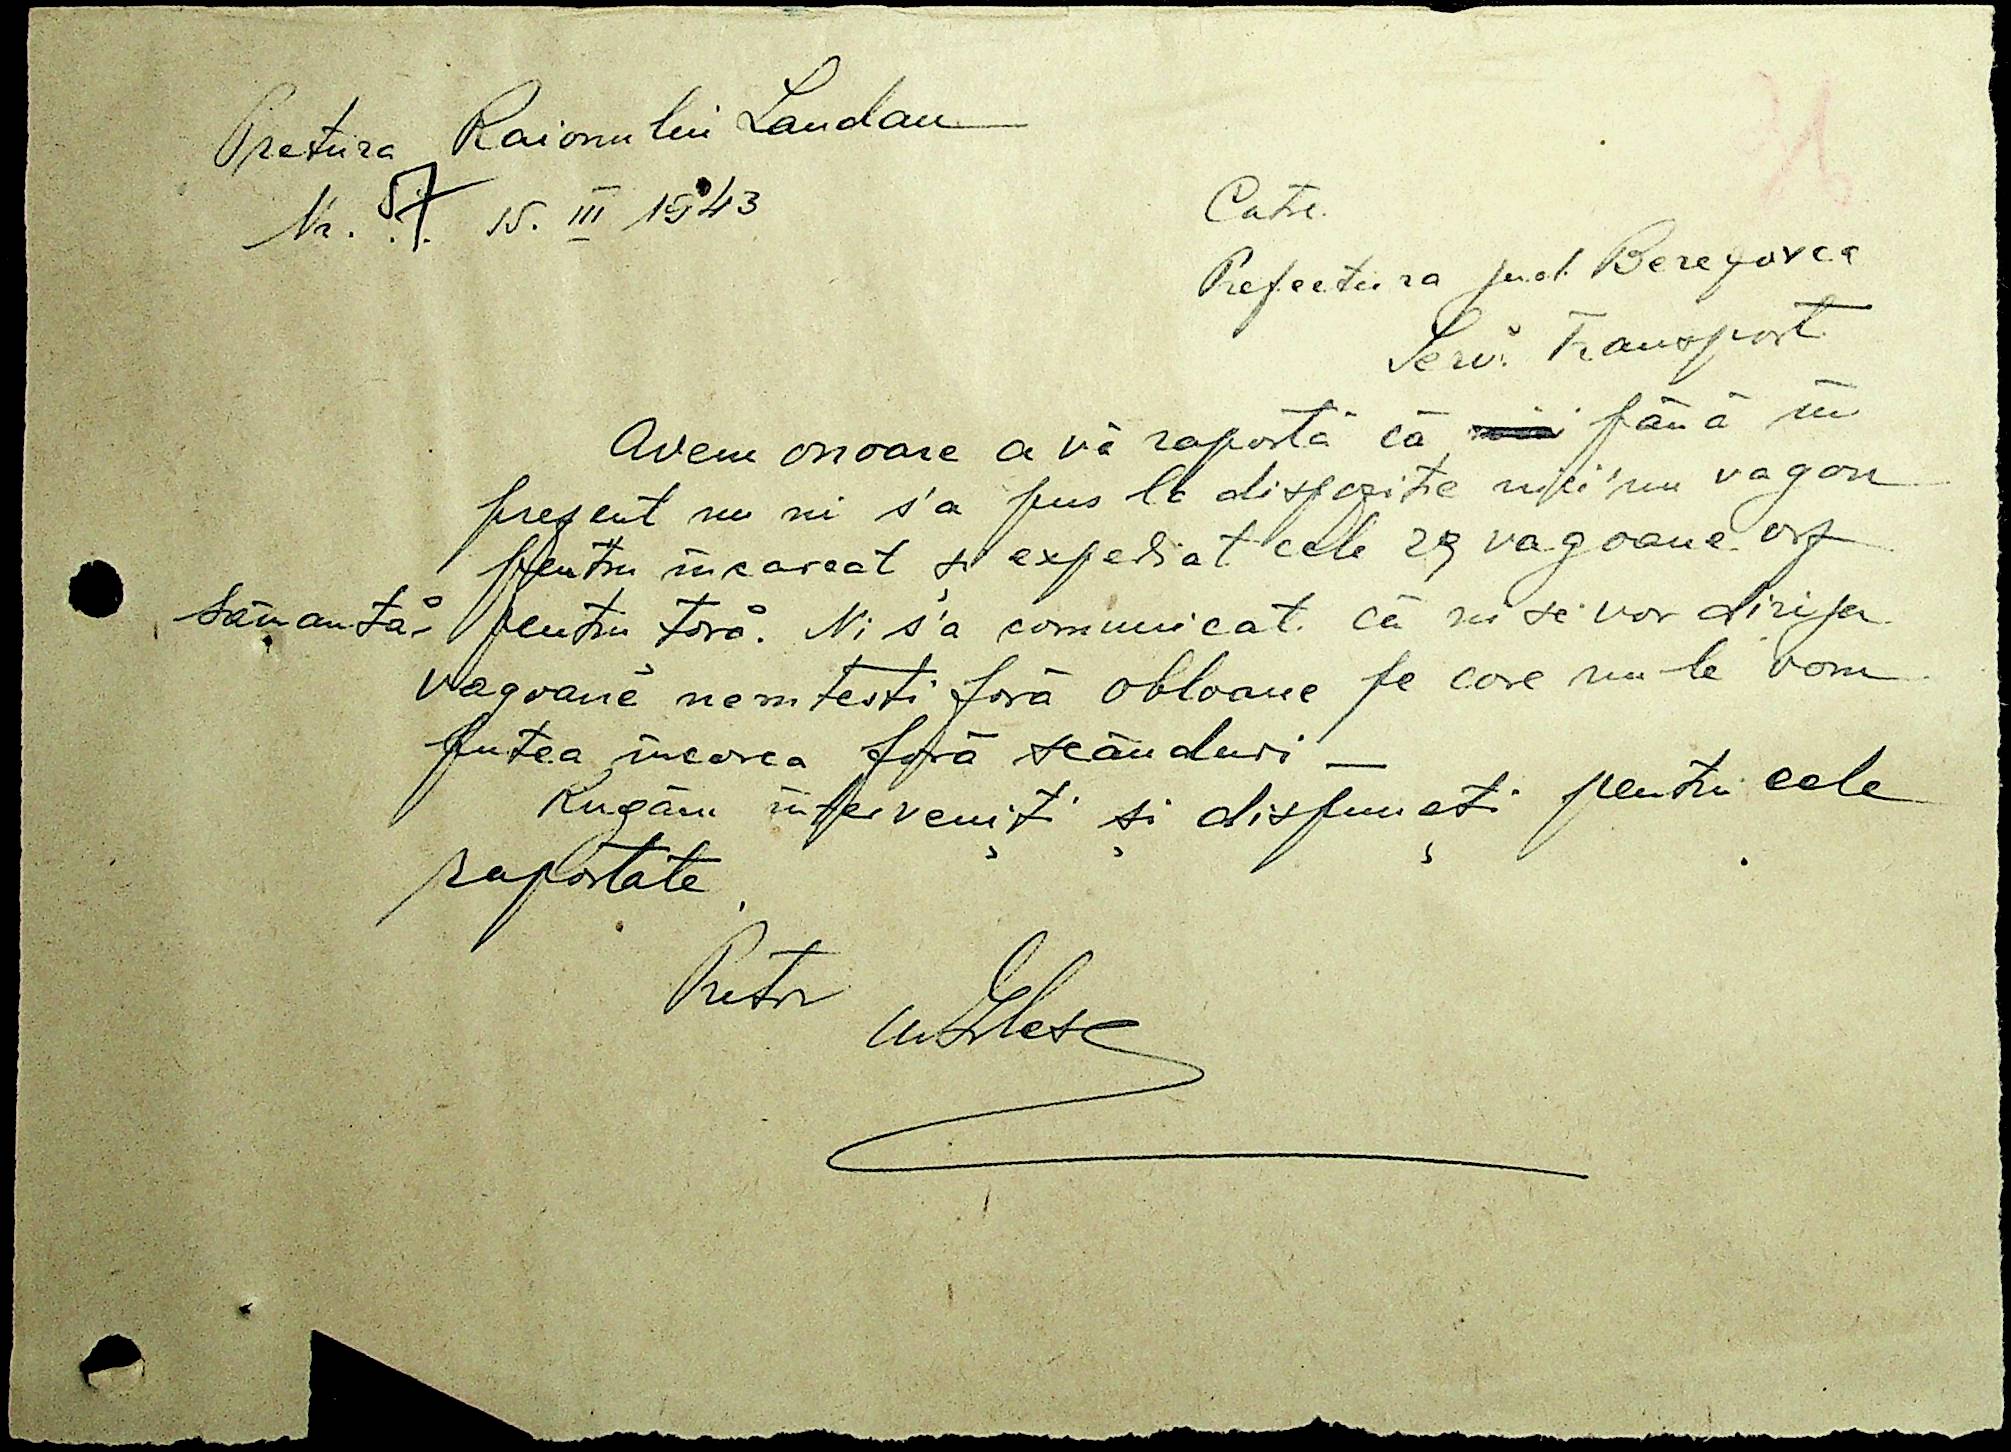 Pretura Raionului Landau
Nr. 57 15. III 1943
Catre
Prefectura jud. Beregovca
Serv. Transport
Avem onoare a vă raportă că până în
prezent nu ni s'a pus la dispozitie nici'un vagon
pentru incarcat și expediat cele 29 vagoane orz
sămanță pentru țară. Ni s'a comunicat că ni se vor dirija
vagoane nemtești fără obloane pe care nu le vom
putea incarca fără scânduri —
Rugăm interveniți și dispuneți pentru cele
raportate.
Pretor